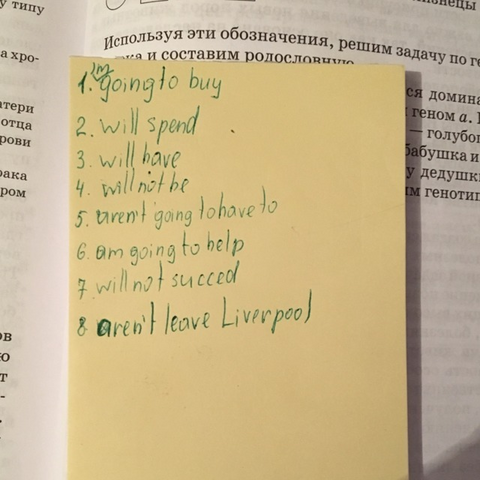 у типу
знецы
Используя эти обозначения, решим задачу по ге
и составим родословную
а хро-
1. I'm going to buy
2. will spend
3. will have
4. will not be
5. aren't gang to have to
6. am going to help
7. will not succed
8 aren't leave Liverpool
ся домина
геном а.
— голубог
бабушка и
у дедушк
им генотип
атери
отца
рови
рака
ром
ов
ю
т